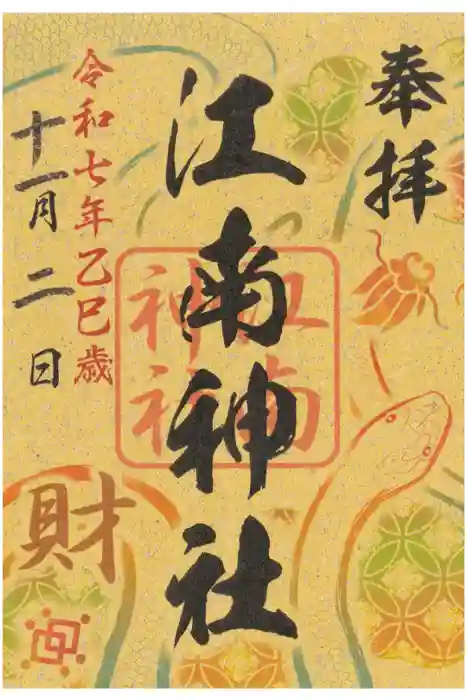 奉拝
江南神社
江南
神社
令和七年乙巳歳
十一月二日
財